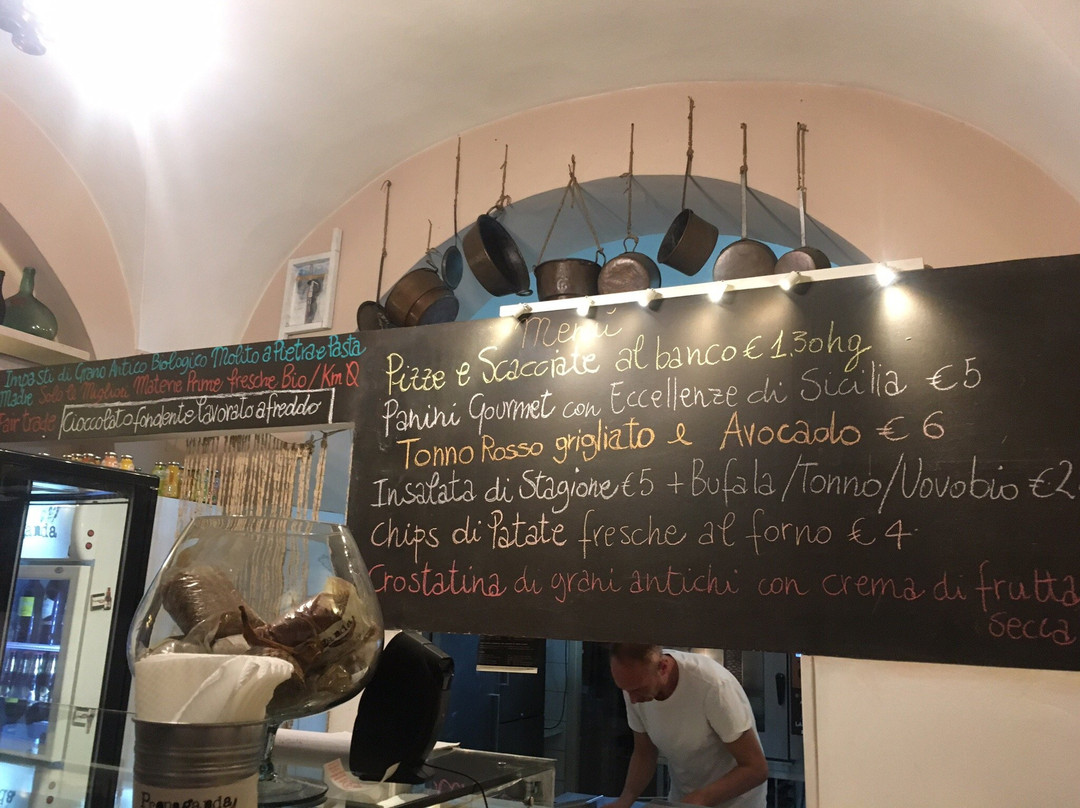 Impasti di Grano Antico Biologico Molito a Pietra e Pasta
Madre Solo le Migliori Materie Prime fresche Bio/Km 0
Fair trade Cioccolato fondente lavorato a freddo
Menù
Pizze e Scacciate al banco € 1.30hg
Panini Gourmet con Eccellenze di Sicilia €5
Tonno Rosso grigliato e Avocado € 6
Insalata di Stagione €5 + Bufala/Tonno/Uovobio €2
Chips di Patate fresche al forno € 4
Crostatina di grani antichi con crema di frutta
secca
Propaganda